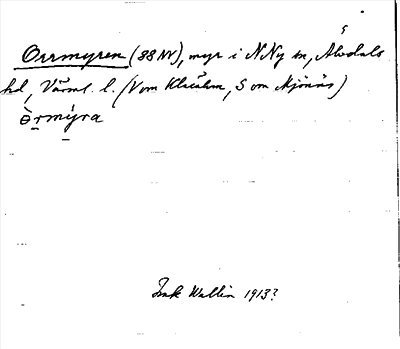 Orrmyren (88 NV), myr i N Ny sn, Älvdals
hd, Värml. l. (V om Klaråälven, S om Mjönäs)
òrmýra
Wallin 1913?